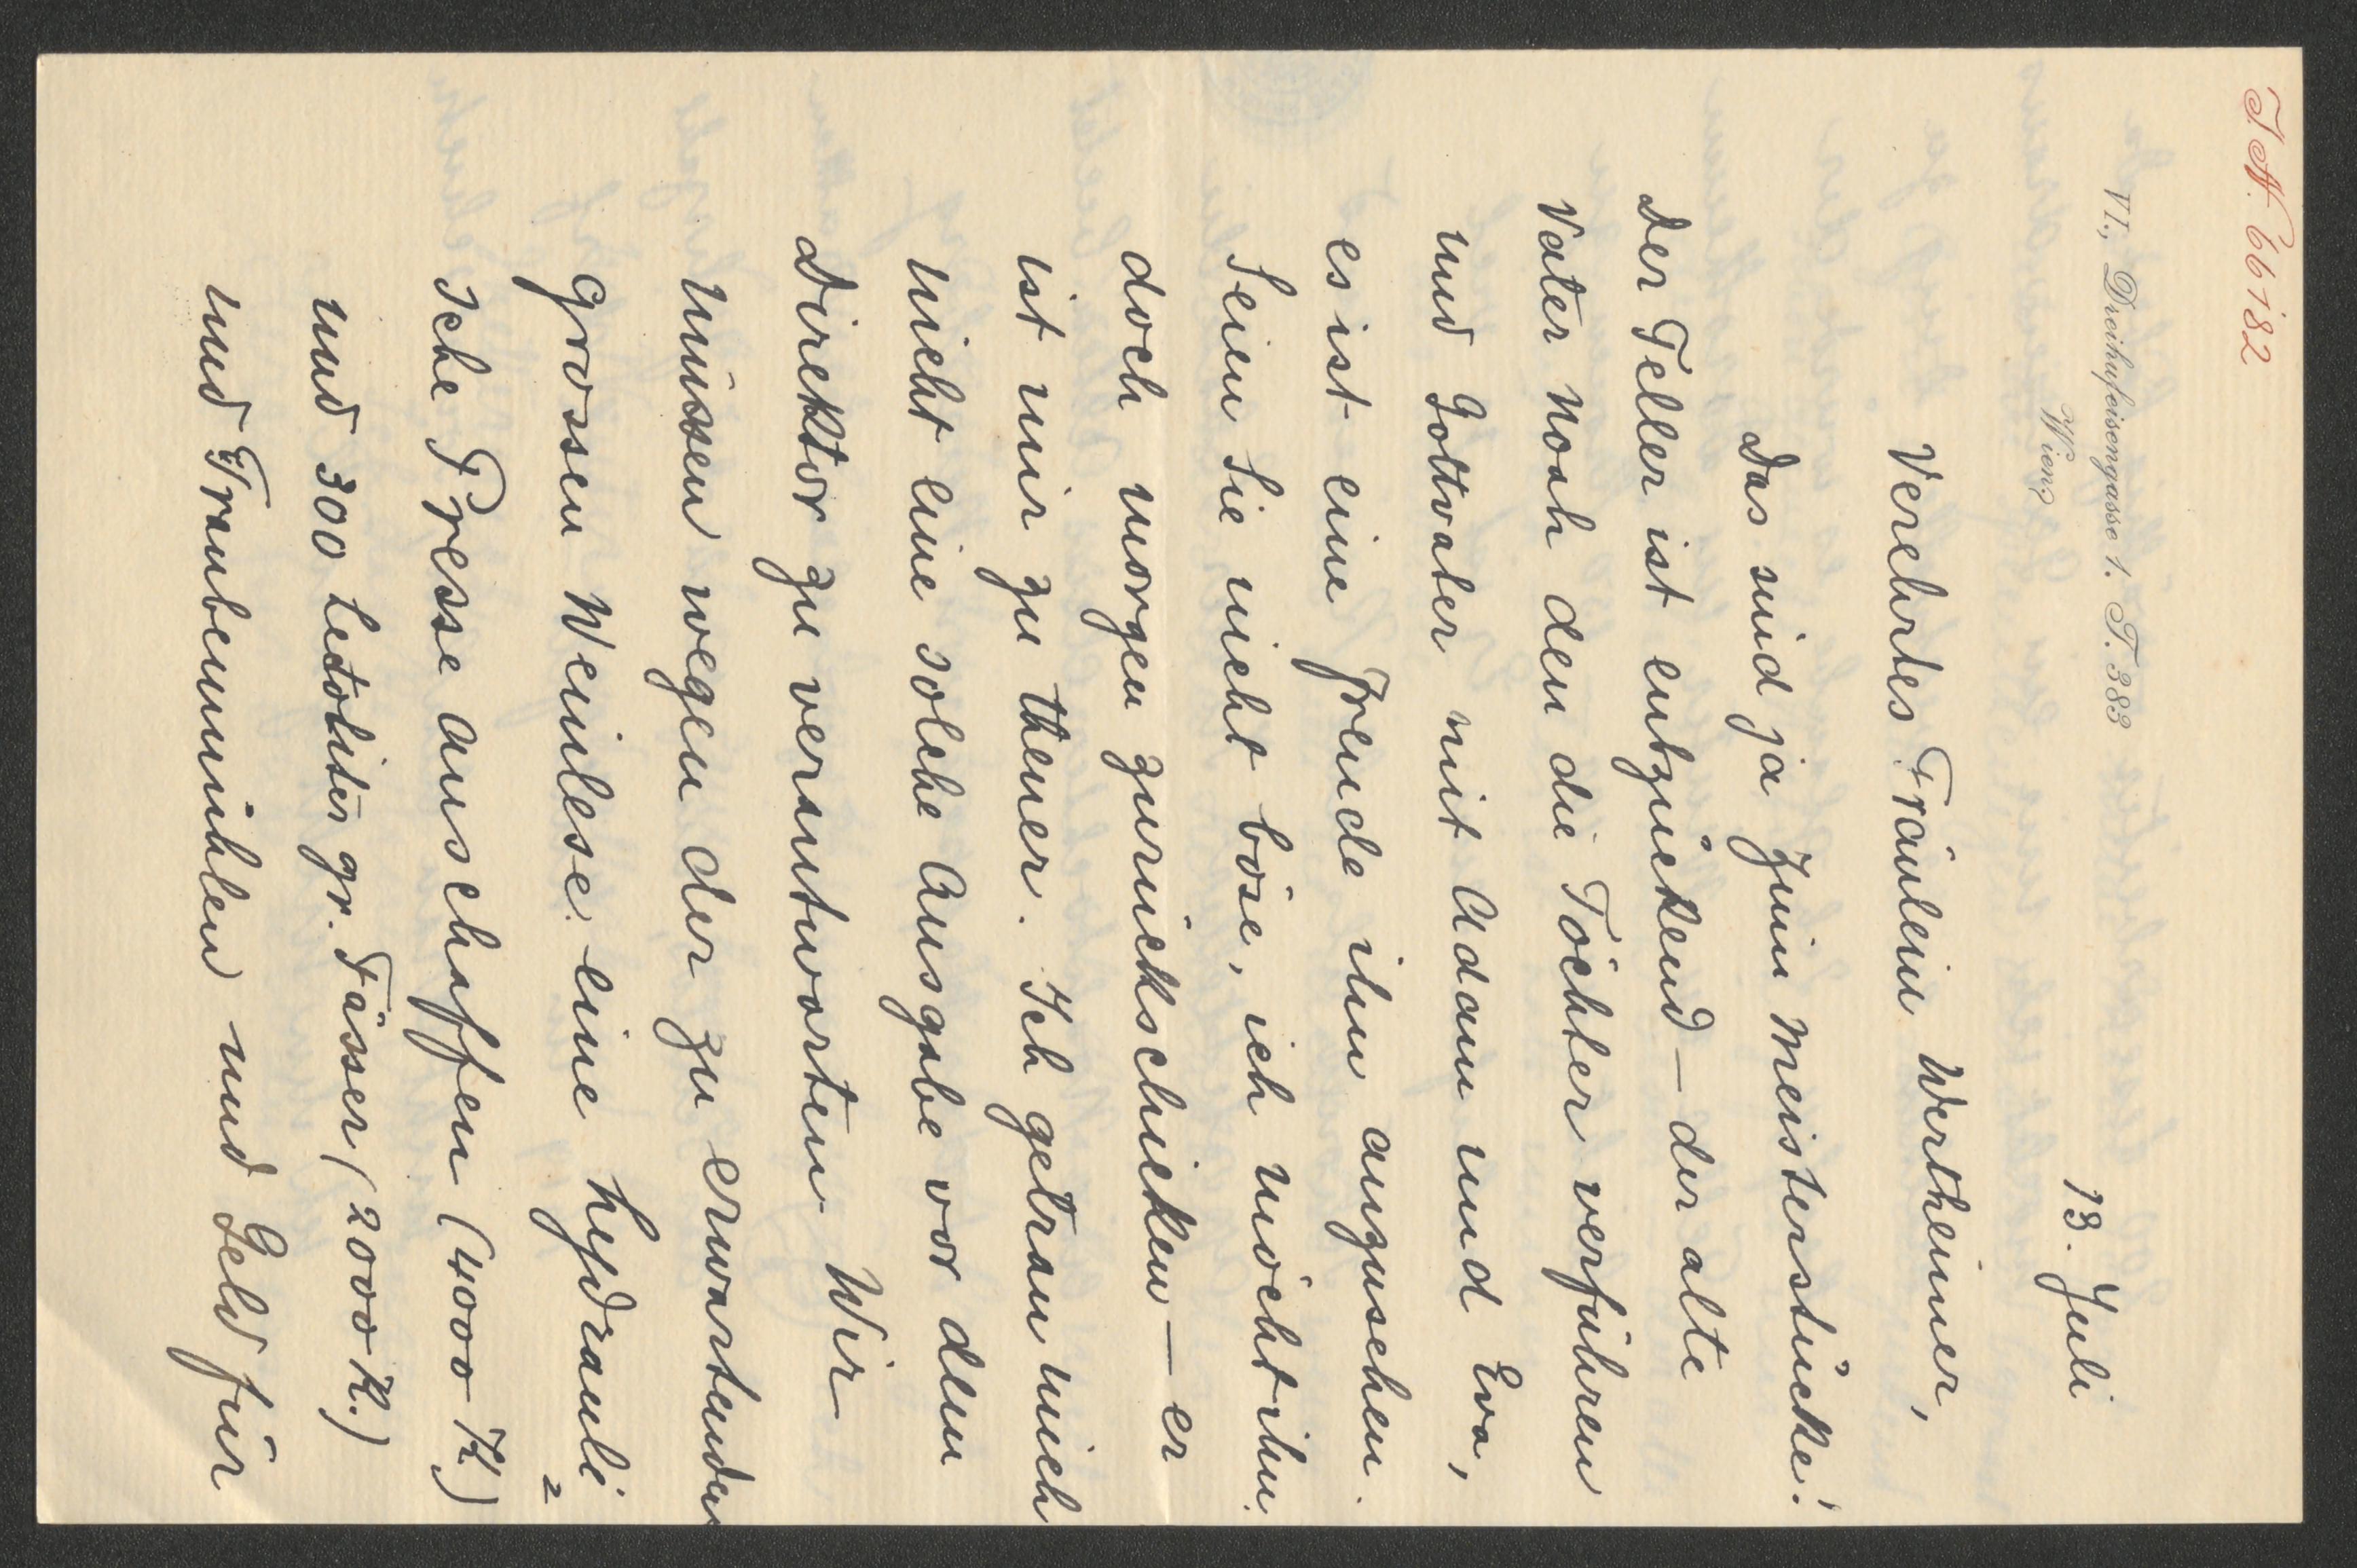 I.N. 66182
VI., Dreihufeisengasse 1. T. 383
Wien,
13. Juli
Verehrtes Fräulein Wertheimer,
Das sind ja zum Meisterstücke!
Der Teller ist entzückend – der alte
Vater Noah den die Töchter verführen
und Gottvater mit Adam und Eva,
es ist eine Freude ihm anzusehen.
Seien Sie nicht böse, ich möcht ihn
doch morgen zurückschicken – er
ist mir zu theuer. Ich getrau mich
nicht eine solche Ausgabe vor dem
Direktor zu verantworten Wir
müssen wegen der zu erwartenden
grossen Weinlese eine hydrauli=
sche Presse anschaffen (4000 K.)
und 300 hectoliter gr. Fässer (2000 K.)
und Traubenmühlen und Geld für